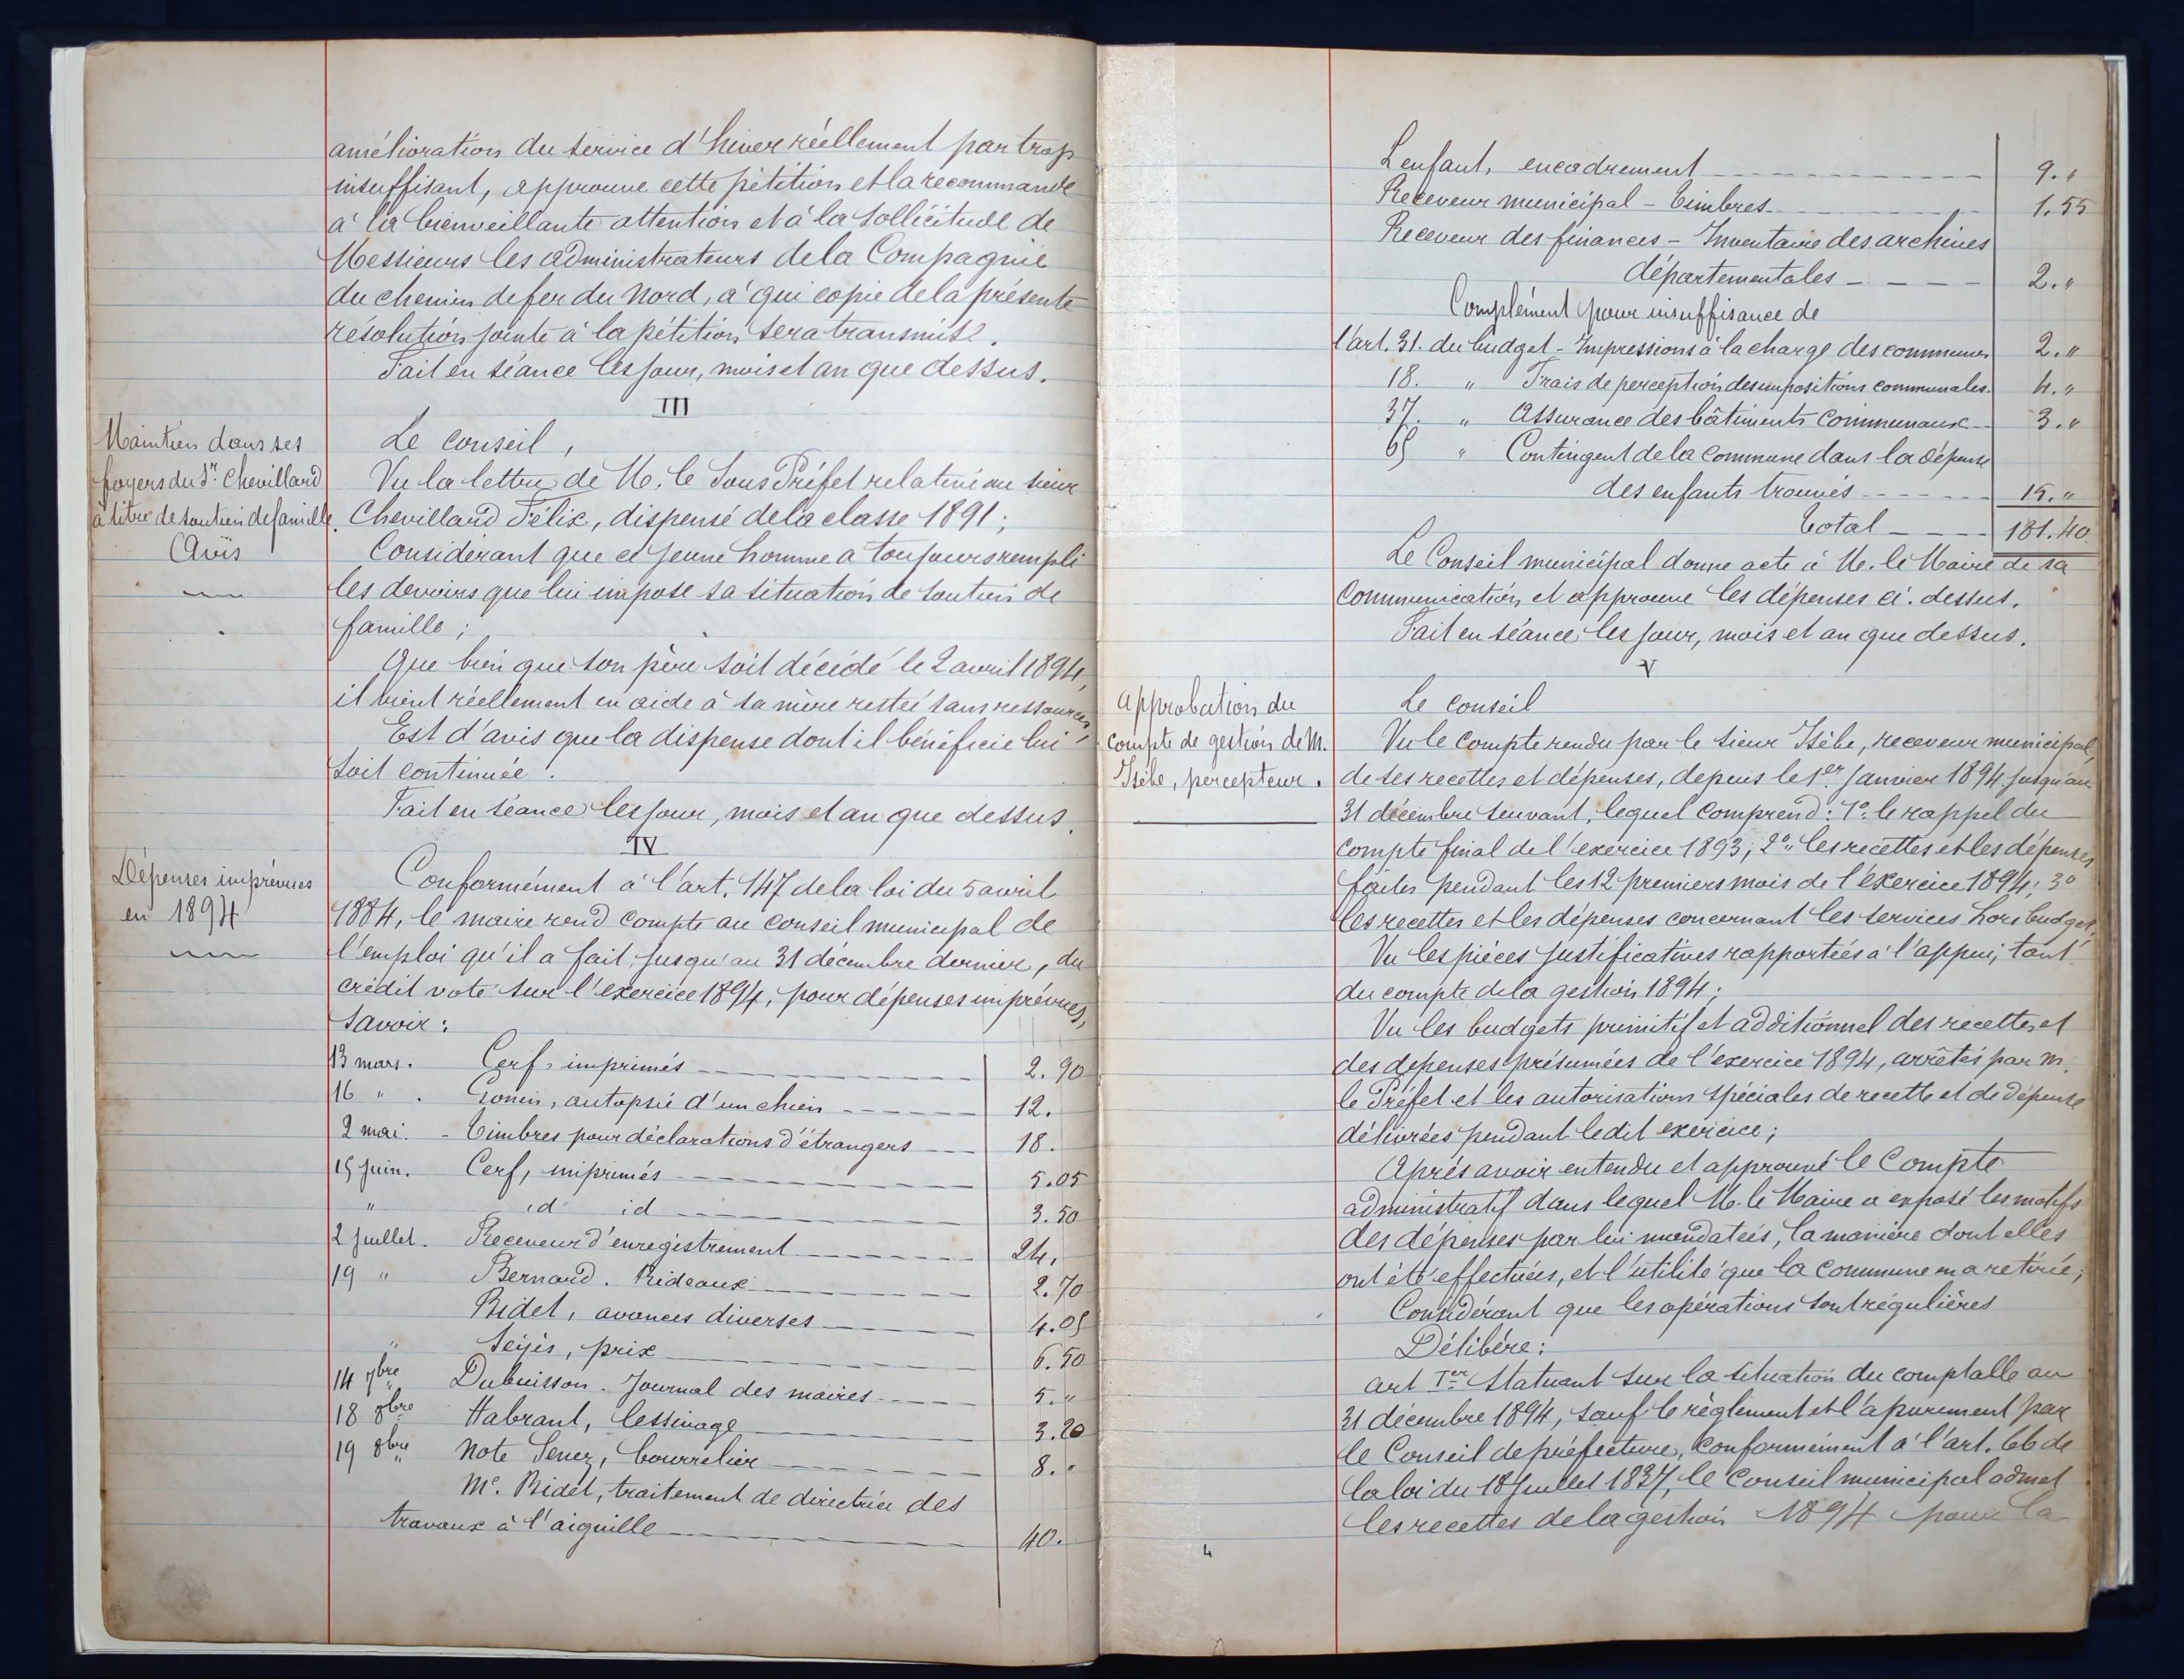 amélioration du service d'hiver réellement par trop
insuffisant, approuve cette pétition et la recommande
à la bienveillante attention et à la sollicitude de
Messieurs les administrateurs de la Compagnie
du chemin de fer du Nord, à qui copie de la présente
résolution jointe à la pétition sera transmise.
Fait en séance les jour, mois et an que dessus.
III
Maintien dans ses
foyers du Sr. Chevillard
à titre de soutien de famille.
Avis
Le conseil,
Vu la lettre de M. le Sous Préfet relative au sieur
Chevillard Félix, dispensé de la classe 1891;
Considérant que ce jeune homme a toujours rempli
les devoirs que lui impose sa situation de soutien de
famille;
Que bien que son père soit décédé le 2 avril 1894,
il vient réellement en aide à sa mère restée sans ressources,
Est d'avis que la dispense dont il bénéficie lui
soit continuée.
Fait en séance les jour, mois et an que dessus.
IV
Dépenses imprévues
en 1894
Conformément à l'art. 147 de la loi du 5 avril
1884, le maire rend compte au conseil municipal de
l'emploi qu'il a fait, jusqu'au 31 décembre dernier, du
crédit voté sur l'exercice 1894, pour dépenses imprévues,
savoir:
13 mars. Cerf, imprimés 2.90
16 " . Gonin, autopsie d'un chien 12.
2 mai. - Timbres pour déclarations d'étrangers 18.
15 juin. Cerf, imprimés 5.05
" id id 3.50
2 juillet. Receveur d'enregistrement 24.
19 " Bernard. Rideaux 2.70
Bidet, avances diverses 4.05
" Seyès, prix 6.50
14 7bre Dubuisson. Journal des maires 5."
18 8bre Habrant, lessivage 3.20
19 8bre Note Senez, bourrelier 8."
Me. Bidet, traitement de directrice des
travaux à l'aiguille 40.
Lenfant, encadrement 9."
Receveur municipal - Timbres 1.55
Receveur des finances - Inventaire des archives
départementales 2."
Complément pour insuffisance de
l'art. 31. du budget - Impressions à la charge des communes 2."
18. " Frais de perception des impositions communales. 4."
37. " Assurance des bâtiments communaux 3."
65 " Contingent de la commune dans la dépense
des enfants trouvés 15."
Total 181.40
Le Conseil municipal donne acte à M. le Maire de sa
communication et approuve les dépenses ci-dessus.
Fait en séance les jour, mois et an que dessus.
V
approbation du
compte de gestion de M.
Isèbe, percepteur.
Le conseil
Vu le compte rendu par le sieur Isèbe, receveur municipal,
de ses recettes et dépenses, depuis le 1er janvier 1894 jusqu'au
31 décembre suivant, lequel comprend: 1o. le rappel du
compte final de l'exercice 1893; 2o. les recettes et les dépenses
faites pendant les 12 premiers mois de l'exercice 1894; 3o
les recettes et les dépenses concernant les services hors budget,
Vu les pièces justificatives rapportées à l'appui, tant
du compte de la gestion 1894;
Vu les budgets primitif et additionnel des recettes et
des dépenses présumées de l'exercice 1894, arrêtés par M.
le Préfet et les autorisations spéciales de recette et de dépense
délivrées pendant ledit exercice;
Après avoir entendu et approuvé le Compte
administratif dans lequel M. le Maire a exposé les motifs
des dépenses par lui mandatées, la manière dont elles
ont été effectuées, et l'utilité que la commune en a retirée;
Considérant que les opérations sont régulières
Délibère:
art 1er. Statuant sur la situation du comptable au
31 décembre 1894, sauf le règlement et l'apurement par
le Conseil de préfecture, conformément à l'art. 66 de
la loi du 18 juillet 1837, le Conseil municipal admet
les recettes de la gestion 1894 pour la
4